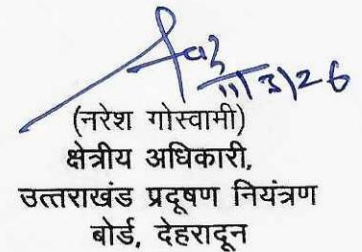 11/3/26
(नरेश गोस्वामी)
क्षेत्रीय अधिकारी,
उत्तराखंड प्रदूषण नियंत्रण
बोर्ड, देहरादून